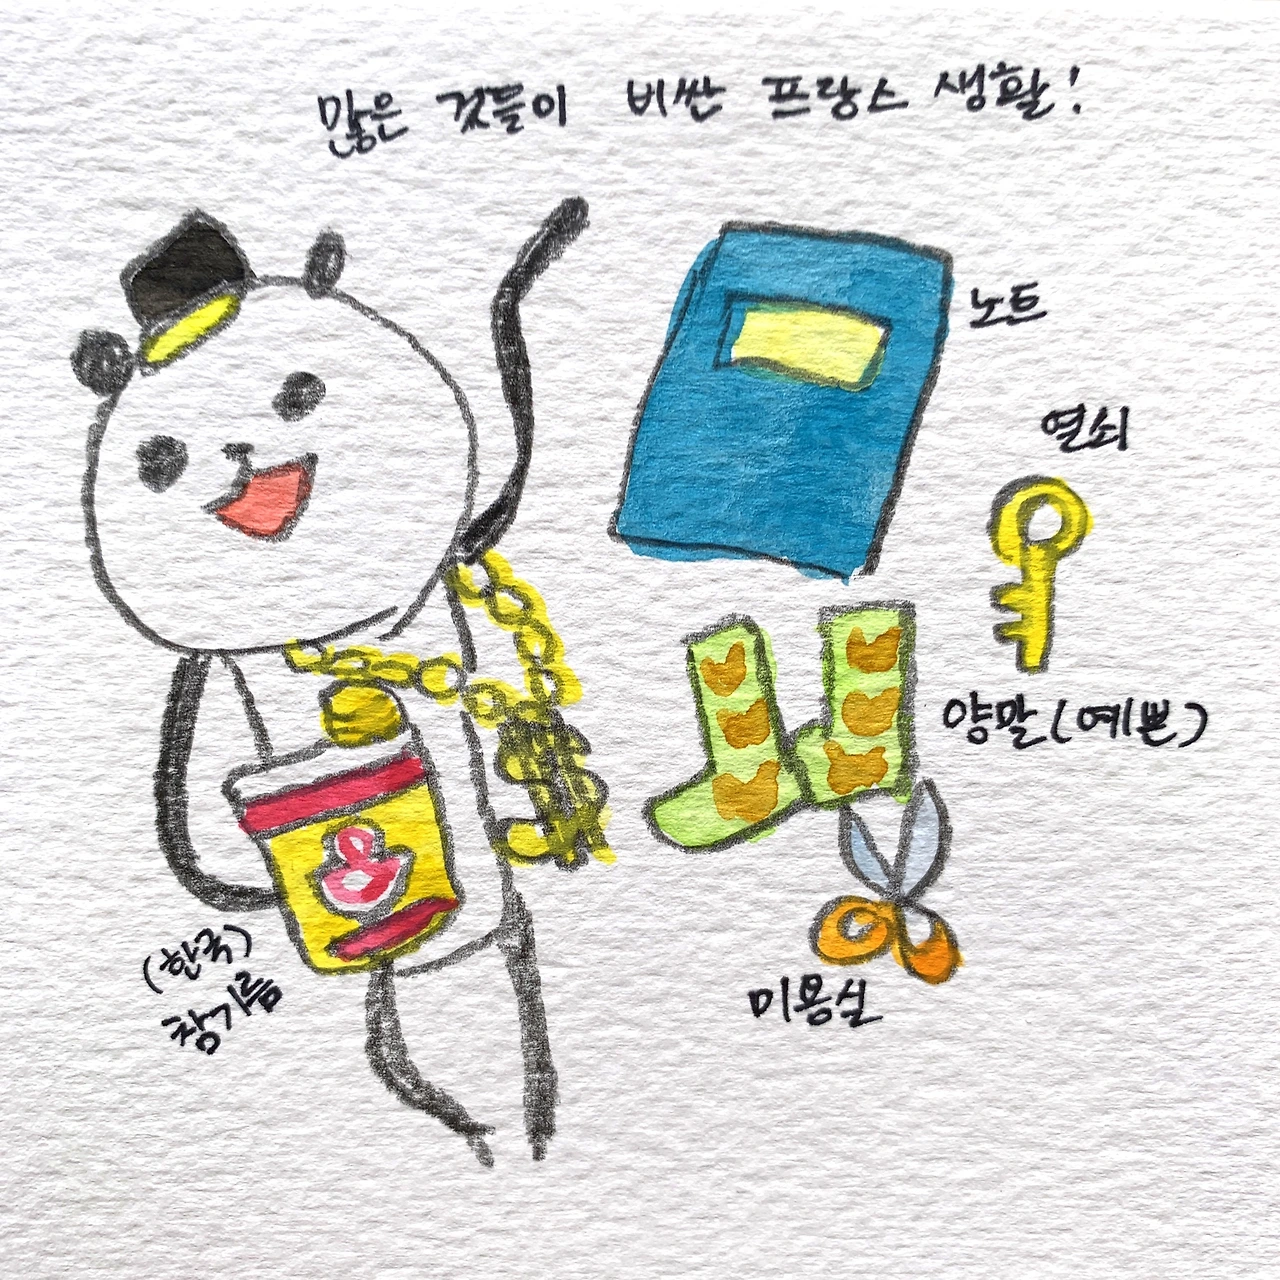 많은 것들이 비싼 프랑스 생활!
노트
열쇠
양말(예쁜)
미용실
(한국)
참기름